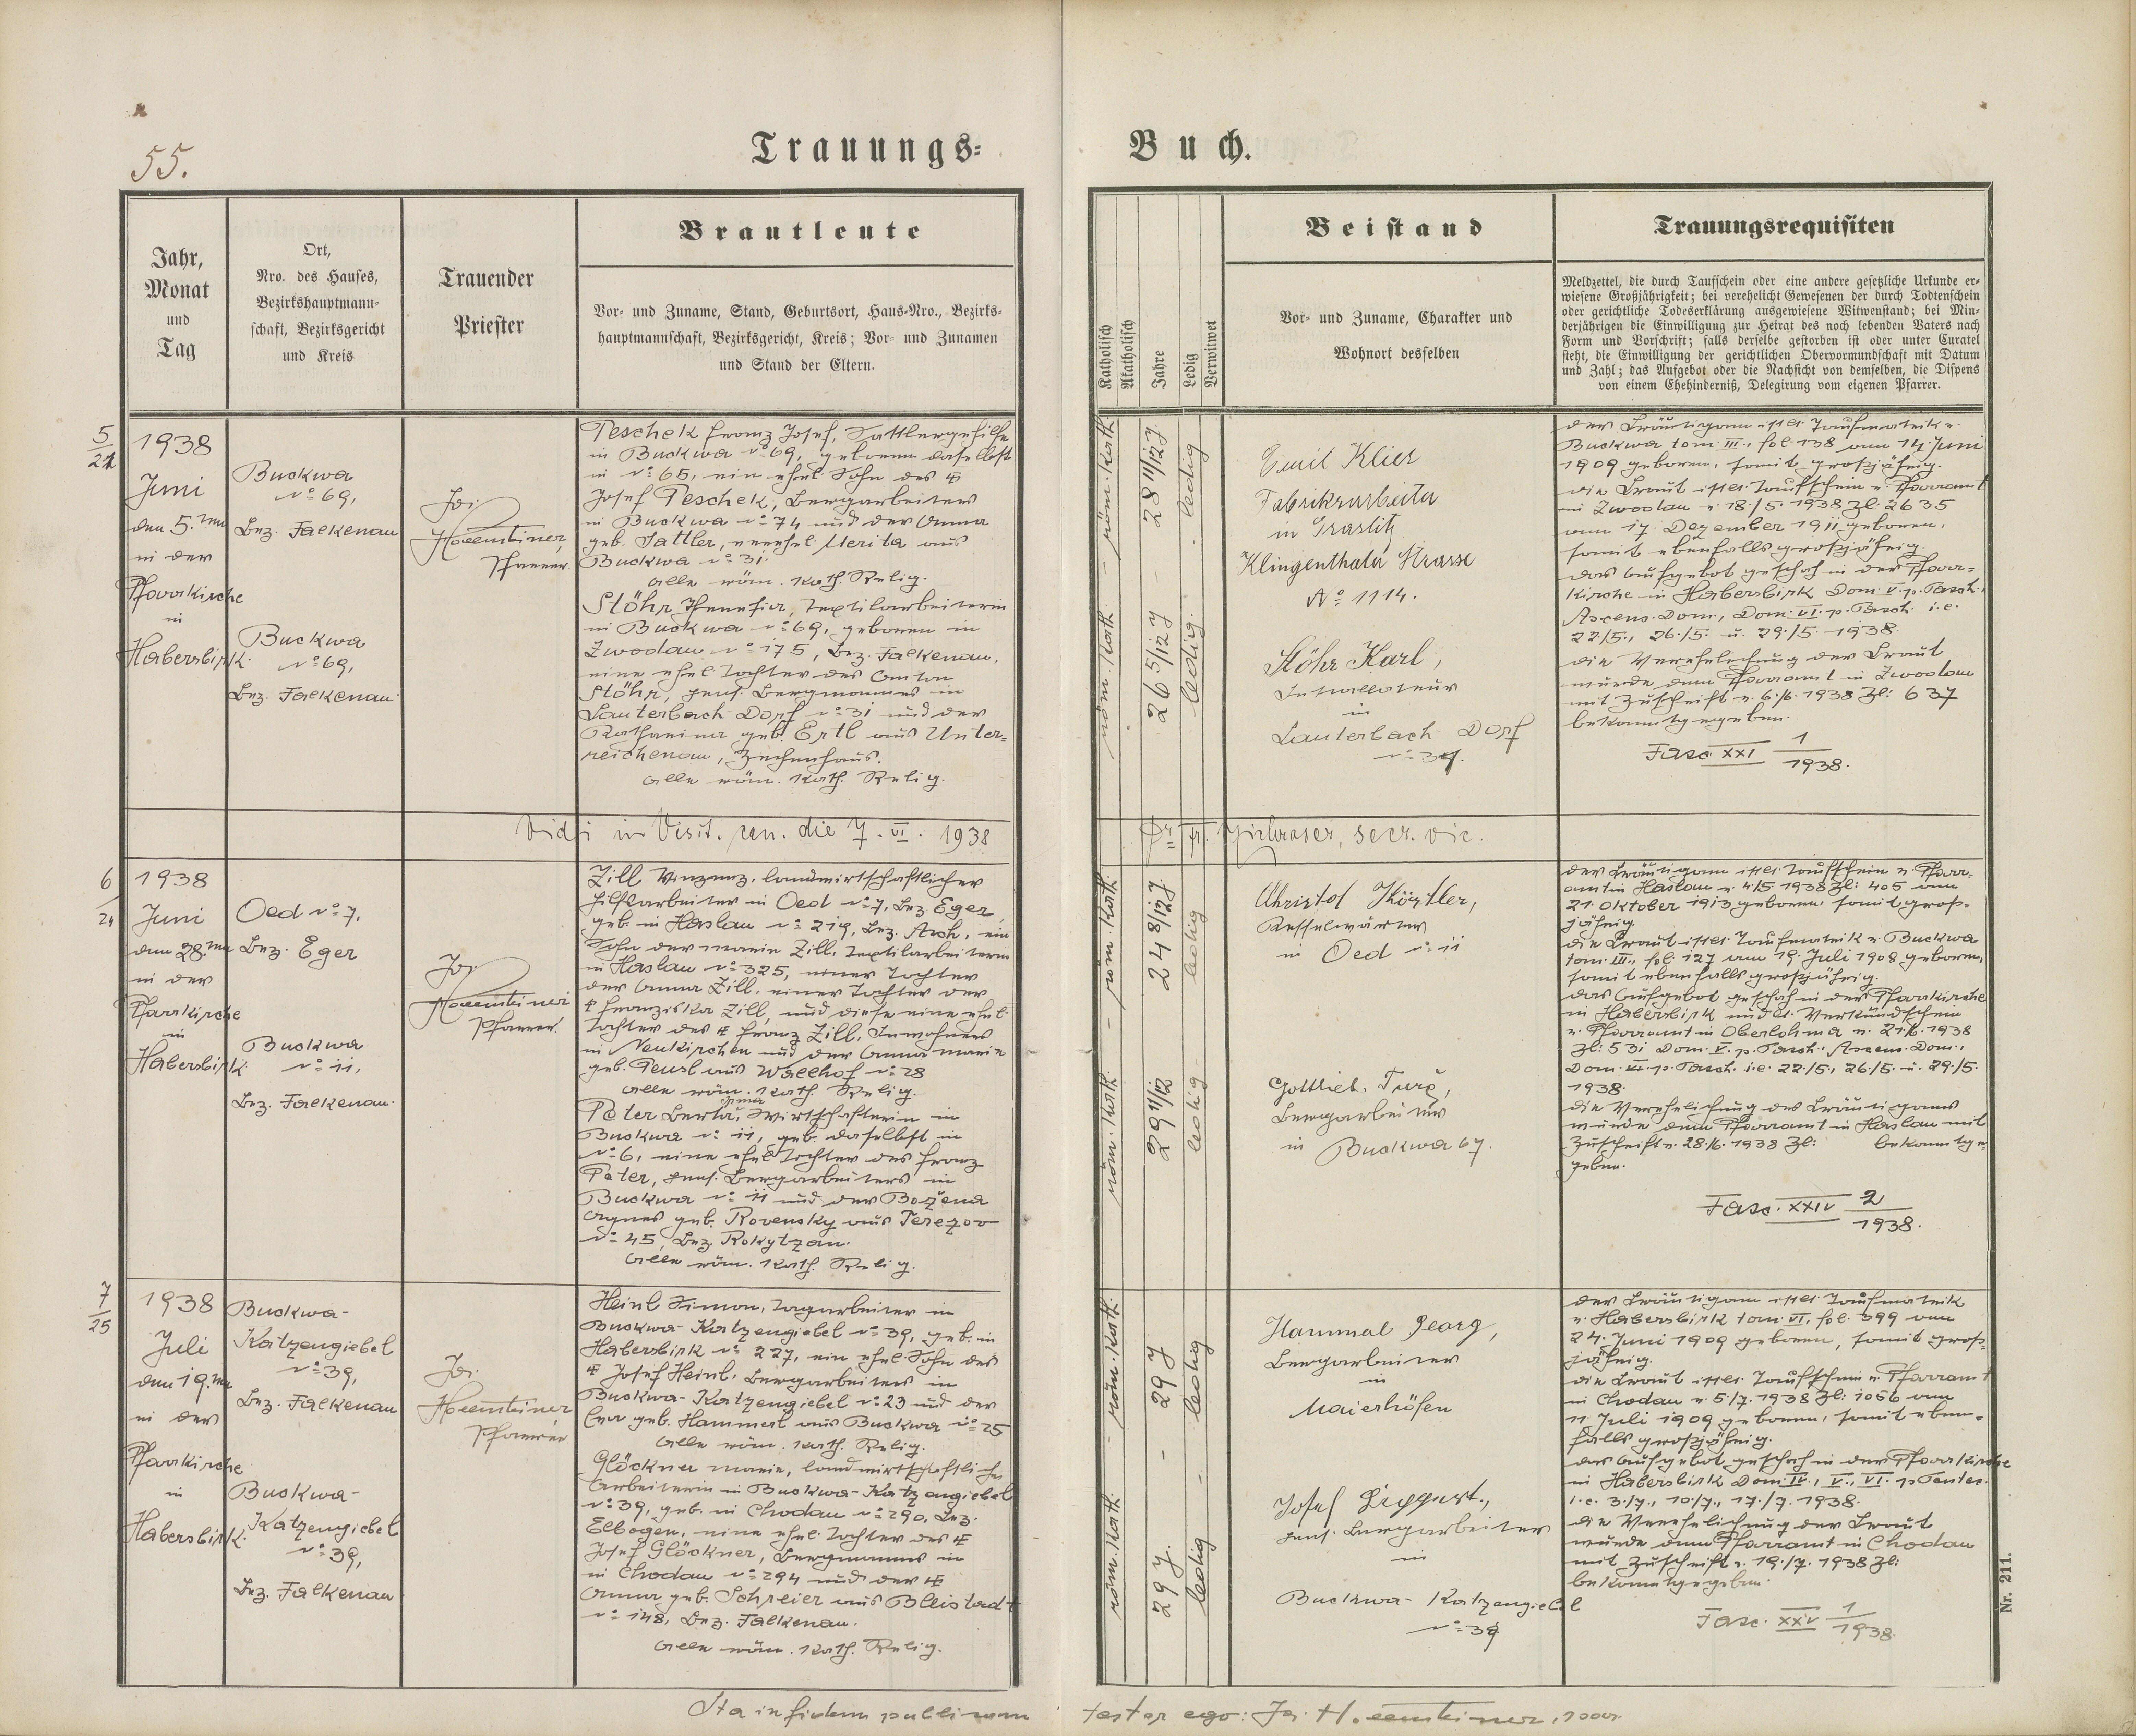 55.
Trauungs=
Buch.
Jahr,
Monat
und
Tag
Ort,
Nro. des Hauses,
Bezirkshauptmann=
schaft, Bezirksgericht
und Kreis
Trauender
Priester
Brautleute
Vor= und Zuname, Stand, Geburtsort, Haus=Nro., Bezirks=
hauptmannschaft, Bezirksgericht, Kreis; Vor= und Zunamen
und Stand der Eltern.
Katholisch
Akatholisch
Jahre
Ledig
Verwitwet
Beistand
Vor= und Zuname, Charakter und
Wohnort desselben
Trauungsrequisiten
Meldzettel, die durch Taufschein oder eine andere gesetzliche Urkunde er=
wiesene Großjährigkeit; bei verehelicht Gewesenen der durch Todtenschein
oder gerichtliche Todeserklärung ausgewiesene Witwenstand; bei Min=
derjährigen die Einwilligung zur Heirat des noch lebenden Vaters nach
Form und Vorschrift; falls derselbe gestorben ist oder unter Curatel
steht, die Einwilligung der gerichtlichen Obervormundschaft mit Datum
und Zahl; das Aufgebot oder die Nachsicht von demselben, die Dispens
von einem Ehehinderniß, Delegirung vom eigenen Pfarrer.
5
1938
Juni
den 5.ten
in der
Pfarrkirche
in
Habersbirk.
Buckwa
No 69,
Bez. Falkenau
Buckwa
No 69,
Bez. Falkenau.
Jos.
Pfarrer.
Peschek Franz Josef, Sattlergehilfe
in Buckwa No 69, geboren daselbst
in No 65, ein ehel. Sohn des †
Josef Peschek, Bergarbeiters
in Buckwa No 74 und der Anna
geb. Sattler, verehel. Merita aus
Buckwa No 31.
Alle röm. kath. Relig.
Stöhr, Textilarbeiterin
in Buckwa No 69, geboren in
Zwodau No 175, Bez. Falkenau,
eine ehel. Tochter des Anton
Stöhr, pens. Bergmannes in
Lauterbach Dorf No 31 und der
Katharina geb. Ertl aus Unter=
reichenau, Zechenhaus.
Alle röm. kath. Relig.
röm. kath. - röm. kath.
28 11/12 J - 26 5/12 J
ledig - ledig.
Emil Klier
Fabriksarbeiter
in Graslitz
Klingenthaler Strasse
No 1114.
Stöhr Karl,
Installateur
in
Lauterbach Dorf
der Bräutigam ist lt. Taufmatrik v.
Buckwa tom III., fol 138 am 14. Juni
1909 geboren, somit großjährig.
die Braut ist lt. Taufschein v. Pfarramt
in Zwodau v. 18/5. 1938 Zl: 2635
am 17. Dezember 1911 geboren,
somit ebenfalls großjährig.
das Aufgebot geschah in der Pfarr=
kirche in Habersbirk Dom. V. p. Pasch.,
Ascens. Dom., Dom. VI. p. Pasch. i.e.
22/5., 26./5. u. 29./5. 1938.
die Verehelichung der Braut
wurde dem Pfarramt in Zwodau
mit Zuschrift v. 6./6. 1938 Zl: 637
bekanntgegeben.
Fasc XXI 1/1938.
Vidi in Visit. can. die 7. VI. 1938
secr. vic.
6
24
1938
Juni
den 28.ten
in der
Pfarrkirche
in
Habersbirk.
Oed No 7,
Bez. Eger
Buckwa
No 11,
Bez. Falkenau.
Jos.
Pfarrer.
Zill Vinzenz, landwirtschaftlicher
Hilfsarbeiter in Oed No 7, Bez. Eger,
geb. in Haslau No 219, Bez. Asch, ein
Sohn der Marie Zill, Textilarbeiterin
in Haslau No 325, einer Tochter
der Anna Zill, einer Tochter der
† Franziska Zill, und diese eine ehel.
Tochter des † Franz Zill, Inwohners
in Neukirchen und der Anna Maria
geb. Peusl aus Wallhof No 28
Alle röm. kath. Relig.
Peter Berta, Wirtschafterin in
Buckwa No 11, geb. daselbst in
No 6, eine ehel. Tochter des Franz
Peter, pens. Bergarbeiters in
Buckwa No 11 und der Božena
Agnes geb. Rovensky aus Terezov
No 45, Bez. Rokytzan.
Alle röm. kath. Relig.
röm. kath. - röm. kath.
24 8/12 J 29 11/12
ledig - ledig
Christof
Kesselwärter
in Oed No 11
Gottlieb
Bergarbeiter
in Buckwa 67.
der Bräutigam ist lt. Taufschein v. Pfarr=
amt in Haslau v. 4/5 1938 Zl: 405 am
21. Oktober 1913 geboren, somit groß=
jährig.
die Braut ist lt. Taufmatrik v. Buckwa
tom. III., fol. 127 am 19. Juli 1908 geboren,
somit ebenfalls großjährig.
das Aufgebot geschah in der Pfarrkirche
in Habersbirk und lt. Verkündschein
v. Pfarramt in Oberlohma v. 21/6. 1938
Zl: 531 Dom. V. p. Pasch., Ascens. Dom.,
Dom. VI. p. Pasch. i.e. 22./5., 26./5. u. 29./5.
1938.
die Verehelichung des Bräutigams
wurde dem Pfarramt in Haslau mit
Zuschrift v. 28./6. 1938 Zl: bekanntge=
geben.
Fasc. XXIV 2/1938.
7
25
1938
Juli
den 19.ten
in der
Pfarrkirche
in
Habersbirk.
Buckwa-
Katzengiebel
No 39,
Bez. Falkenau
Buckwa-
Katzengiebel
No 39,
Bez. Falkenau
Jos.
Pfarrer
Heinl Simon, Tagarbeiter in
Buckwa-Katzengiebel No 39, geb. in
Habersbirk No 227, ein ehel. Sohn des
† Josef Heinl, Bergarbeiters in
Buckwa-Katzengiebel No 23 und der
Eva geb. Hammerl aus Buckwa No 25
Alle röm. kath. Relig.
Glöckner Marie, landwirtschaftliche
Arbeiterin in Buckwa-Katzengiebel
No 39, geb. in Chodau No 290, Bez.
Elbogen, eine ehel. Tochter des †
Josef Glöckner, Bergmannes in
in Chodau No 294 und der †
Anna geb. Schreier aus Bleistadt
No 148, Bez. Falkenau.
Alle röm. kath. Relig.
röm. kath. - röm. kath.
29 J - 29 J.
ledig - ledig
Hammal Georg,
Bergarbeiter
in
Maierhöfen
Josef
pens. Bergarbeiter
in
Buckwa-Katzengiebel
No 39
der Bräutigam ist lt. Taufmatrik
v. Habersbirk tom. VI, fol. 399 am
24. Juni 1909 geboren, somit groß=
jährig.
die Braut ist lt. Taufschein v. Pfarramt
in Chodau v. 5/7. 1938 Zl: 1056 am
11. Juli 1909 geboren, somit eben=
falls großjährig.
das Aufgebot geschah in der Pfarrkirche
in Habersbirk Dom IV., V., VI. p. Pentec.
i.e. 3./7., 10/7., 17./7. 1938.
die Verehelichung der Braut
wurde dem Pfarramt in Chodau
mit Zuschrift v. 19./7. 1938 Zl:
bekanntgegeben.
Fasc. XXV 1/1938.
Nr. 211.
Ita in fidem publicam
testor ego: Jos.